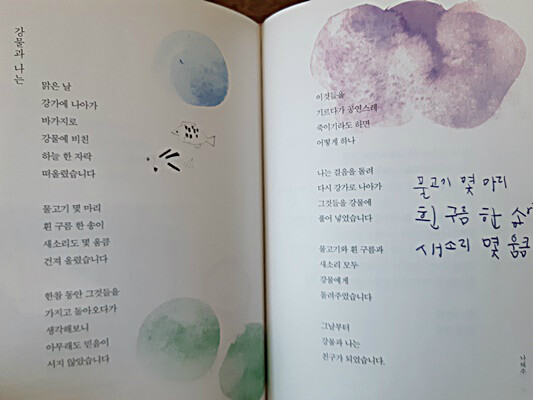 강물과 나는
맑은 날
강가에 나아가
바가지로
강물에 비친
하늘 한 자락
떠올렸습니다
물고기 몇 마리
흰 구름 한 송이
새소리도 몇 움큼
건져 올렸습니다
한참 동안 그것들을
가지고 돌아오다가
생각해보니
아무래도 믿음이
서지 않았습니다
이것들을
기르다가 공연스레
죽이기라도 하면
어떻게 하나
나는 걸음을 돌려
다시 강가로 나아가
그것들을 강물에
풀어 넣었습니다
물고기와 흰 구름과
새소리 모두
강물에게
돌려주었습니다
그날부터
강물과 나는
친구가 되었습니다.
물고기 몇 마리
흰 구름 한 송
새소리 몇 움큼
나태주